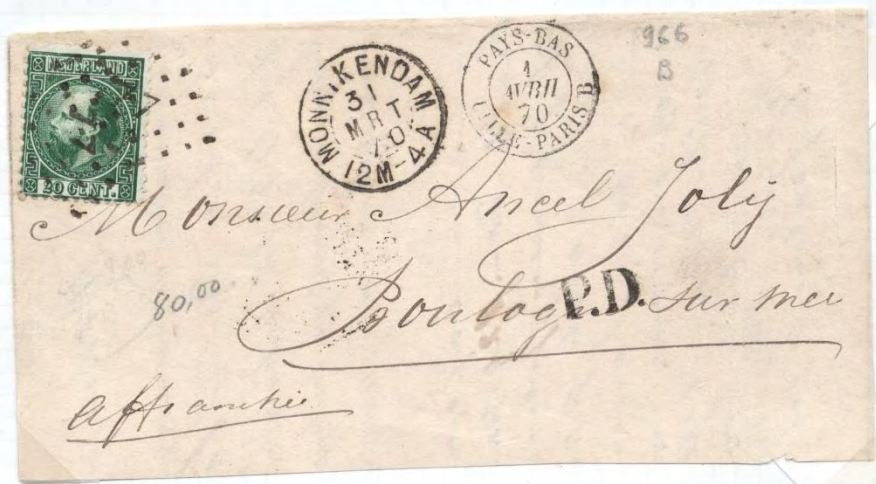 NEDERLAND
20 CENT.
MONNIKENDAM
31
MRT
70
12M-4A
PAYS-BAS
1
AVRIL
70
LILLE-PARIS B
966
B
Monsieur Ancel Joly
Boulogne sur mer
P.D.
80,00
affranchie